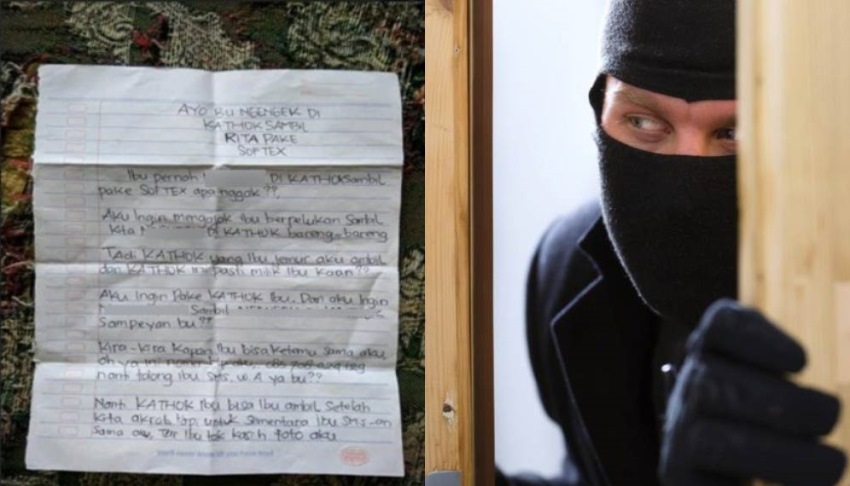 AYO BU NGENGEK DI
KATHOK SAMBIL
KITA PAKE
SOFTEX
Ibu pernah DI KATHOK Sambil
pake SOFTEX apa nggak??
Aku Ingin mengajak Ibu berpelukan Sambil
Kita DI KATHOK bareng-bareng
TAdi KATHOK yang Ibu jemur aku ambil
dan KATHOK ini pasti milik Ibu Kaan??
Aku Ingin Pake KATHOK Ibu. Dan aku Ingin
Sambil
Sampeyan bu??
Kira-kira Kapan Ibu bisa Ketemu Sama aku
oh ya ini
nanti tolong Ibu SMS, WA ya bu??
Nanti KATHOK Ibu bisa Ibu ambil Setelah
Kita akrab tapi untuk Sementara Ibu SMS-an
Sama aku, Ibu tak kasih foto aku